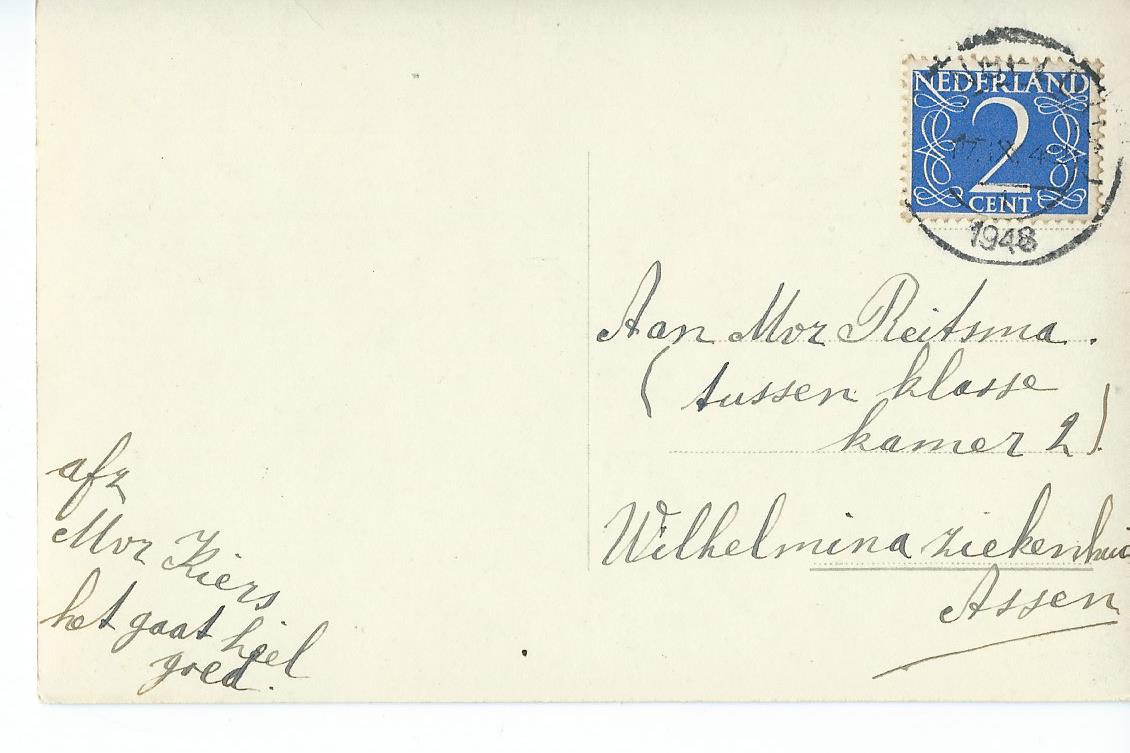 NEDERLAND
2
CENT
17.IX.4
1948
Aan Mvr Reitsma.
(tussen klasse
kamer 2).
Wilhelmina ziekenhuis
Assen
afz
Mvr Kiers
het gaat heel
goed.